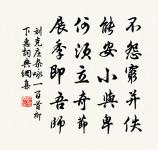 不怨窮并佚
能安小與卑
何須立奇節
展季即吾師
劉克莊雜詠一百首柳
下惠詞典網集